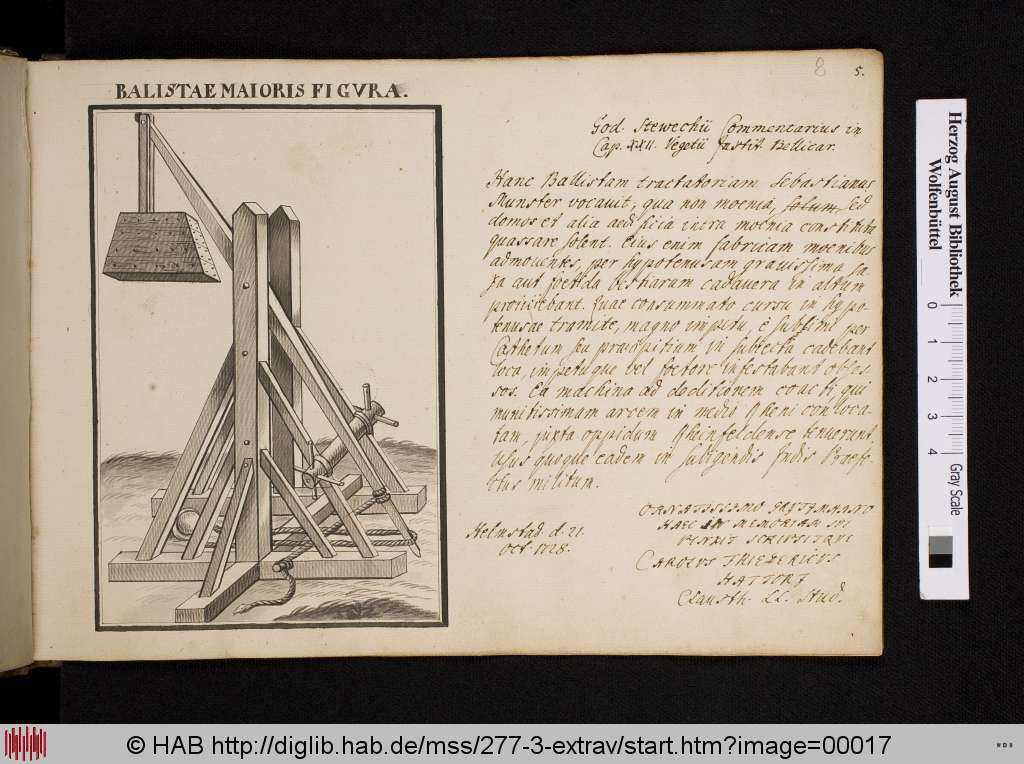 8 5.
BALISTAE MAIORIS FIGVRA.
God. Stewechii Commentarius in
Cap. XXII. Vegetii Instit. Bellicar.
Hanc Ballistam tractatoriam Sebastianus
Munster vocavit, qua non moenia, solum, sed
domos et alia aedificia intra moenia constituta
quassare solent. Eius enim fabricam moenibus
admoventes, per hypotenusam gravissima sa
xa aut foetida bestiarum cadavera in altum
proiiciebant. Quae consummato cursu in hypo-
tenusae tramite, magno impetu, e sublimi per
Cathetum seu in subiecta cadebant
loca, impetuque vel foetore infestabant obses
sos. Ea machina ad deditionem coacti, qui
munitissimam arcem in medio Rheni colloca-
tam, juxta oppidum Rheinfeldense tenuerunt.
Usus quoque eadem in subigendis Indis Praefe-
ctus militum.
Helmstad. d. 21.
Oct. 1728.
ORNATISSIMO
HAEC IN MEMORIAM SVI
CAROLVS FRIEDERICVS
HATTORF
Clausth. LL. Stud.
Herzog August Bibliothek
Wolfenbüttel
0 1 2 3 4
Gray Scale
© HAB http://diglib.hab.de/mss/277-3-extrav/start.htm?image=00017